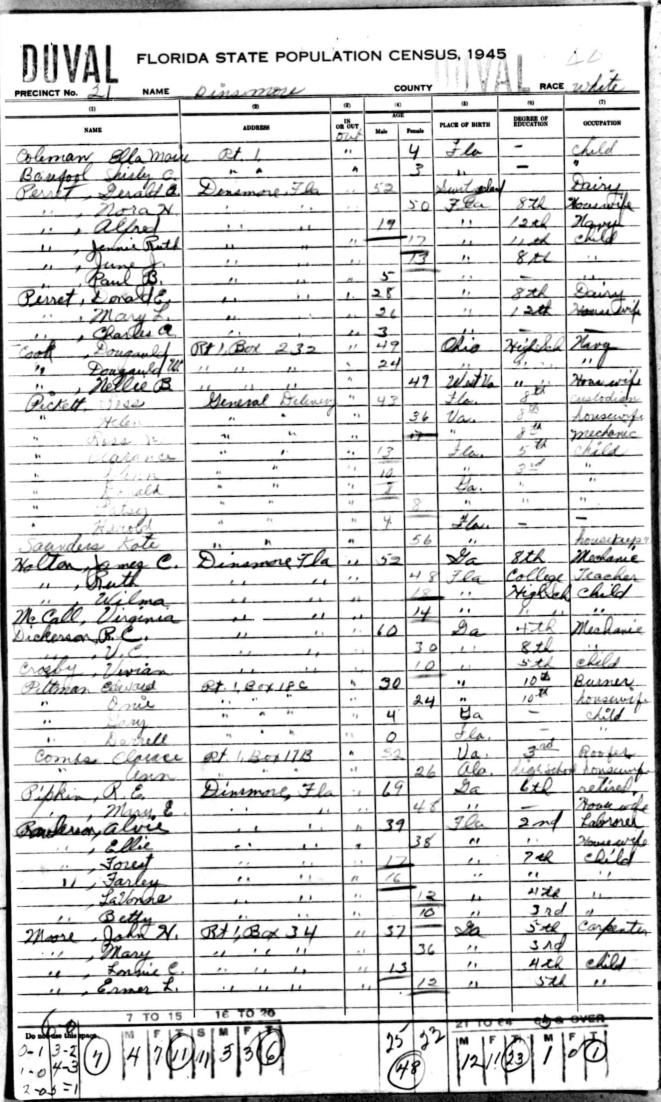 DUVAL FLORIDA STATE POPULATION CENSUS, 1945 DUVAL
PRECINCT No. 21 NAME Dinsmore COUNTY RACE White
(1) (2) (3) (4) (5) (6) (7)
NAME ADDRESS IN OR OUT AGE Male Female PLACE OF BIRTH DEGREE OF EDUCATION OCCUPATION
out
Coleman, Ella Marie Rt. 1, " 4 Fla – child
Shirley " " " 3 " – "
Perret, Gerald A. Dinsmore, Fla " 52 Switzerland Dairy
" , Nora H. " " " 50 Fla 8th Housewife
" , Alfred " " " 19 " 12th Navy
" , Jennie Ruth " " " 17 " 11th child
" , June J. " " " 13 " 8th "
" , Paul B. " " " 5 " – "
Perret, Donald E. " " " 28 " 8th Dairy
" , Mary L. " " " 26 " 12th House wife
" , Charles A. " " " 3 " – "
Cook, Dougauld Rt 1, Box 232 " 49 Ohio High Sch Navy
" Dougauld M " " " " 24 " " "
" , Nellie B " " " " 49 West Va " " House wife
Pickett Ross General Delivery " 43 Fla. 8th custodian
" Helen " " " 36 Va. 8th housewife
" Ross " " " 17 " 8th mechanic
" Clarence " " " 13 Fla. 5th child
" " " " 10 " 3rd "
" Donald " " " Ga. " "
" Patsy " " " 8 " " "
" Harold " " " 4 Fla. – –
Saunders Kate " " " 56 "
Holton, James C. Dinsmore, Fla " 52 Ga 8th Mechanic
" , Ruth " " " 48 Fla College Teacher
" , Wilma " " " 18 " High Sch Child
McCall, Virginia " " " 14 " " "
Dickerson, R. C. " " " 60 Ga 4th Mechanic
" , V. E. " " " 30 " 8th "
Crosby, Vivian " " " 10 " 5th child
Pittman Edward Rt. 1, Box 18C " 30 " 10th Burner
" Onie " " " 24 " 10th housewife
" Gary " " " 4 Ga – child
" Darrell " " " 0 Fla. – "
Combs Rt. 1, Box 17B " 52 Va. 3rd Roofer
" Ann " " " 26 Ala. High School housewife
Pipkin, R. E. Dinsmore, Fla " 69 Ga 6th retired
" , Mary E. " " " 48 " – House wife
Alvie " " " 39 Fla 2nd Laborer
" , Ellie " " " 38 " " House wife
" , Forest " " " 17 " 7th child
" , Farley " " " 16 " " "
" , LaVonne " " " 12 " 4th "
" Betty " " " 10 " 3rd "
Moore, John H. Rt 1, Box 34 " 37 Ga 5th Carpenter
" , Mary " " " 36 " 3rd
" , Lonnie C. " " " 13 " 4th child
" , Ermer L. " " " 12 " 5th "
7 TO 15 16 TO 20 21 TO 64 & OVER
Do not use this space
M F T S M F T 25 23 M F T M F T
0-1 3-2
1-0 4-3
2-0 5-1
7 4 7 11 11 3 3 6 48 12 11 23 1 0 1